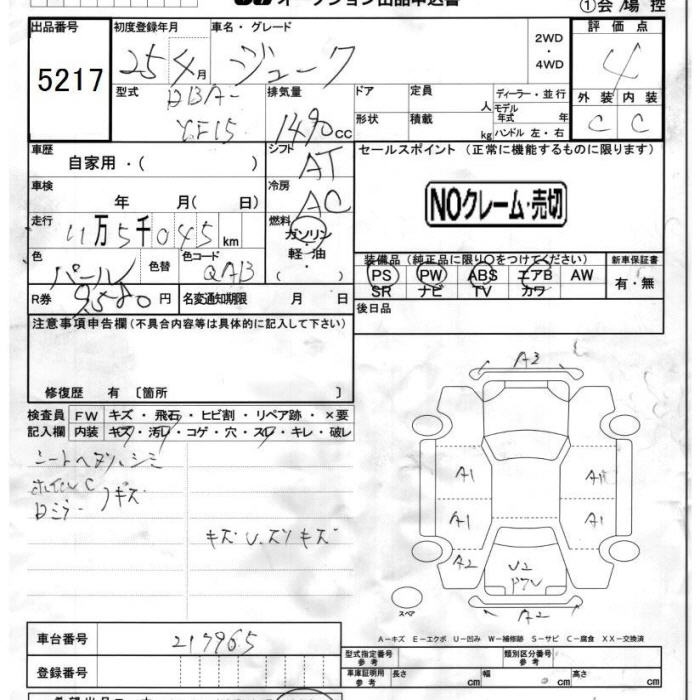 オークション出品申込書
①会場控
出品番号 初度登録年月 車名・グレード 2WD・4WD 評価点
5217 25 4月 ジューク 4
型式 DBA-YF15 排気量 1490cc
ドア 定員 人 ディーラー・並行
形状 積載 kg モデル年式 年 ハンドル 左・右
外装 内装
C C
車歴 自家用・( ) シフト AT
セールスポイント (正常に機能するものに限ります)
車検 年 月( 日) 冷房 AC
NOクレーム・売切
走行 11万5千045km 燃料 ガソリン・軽油・( )
色 パール 色替 色コード QAB
装備品(純正品に限り○をつけてください) 新車保証書
PS PW ABS エアB AW 有・無
SR ナビ TV カワ
R券 9580円 名変通知期限 月 日
後日品
注意事項申告欄(不具合内容等は具体的に記入して下さい)
修復歴 有〔箇所 〕
検査員 FW キズ・飛石・ヒビ割・リペア跡・×要
記入欄 内装 キズ・汚レ・コゲ・穴・スレ・キレ・破レ
シートヘタリ、シミ
キズ
キズ U.スリキズ
A3
A1 A1
A1 A1
A2 U2
A2
スペア
A-キズ E-エクボ U-凹み W-補修跡 S-サビ C-腐食 XX-交換済
車台番号 217965
登録番号
型式指定番号 参考 類別区分番号 参考
車庫証明用 参考 長さ cm 幅 cm 高さ cm